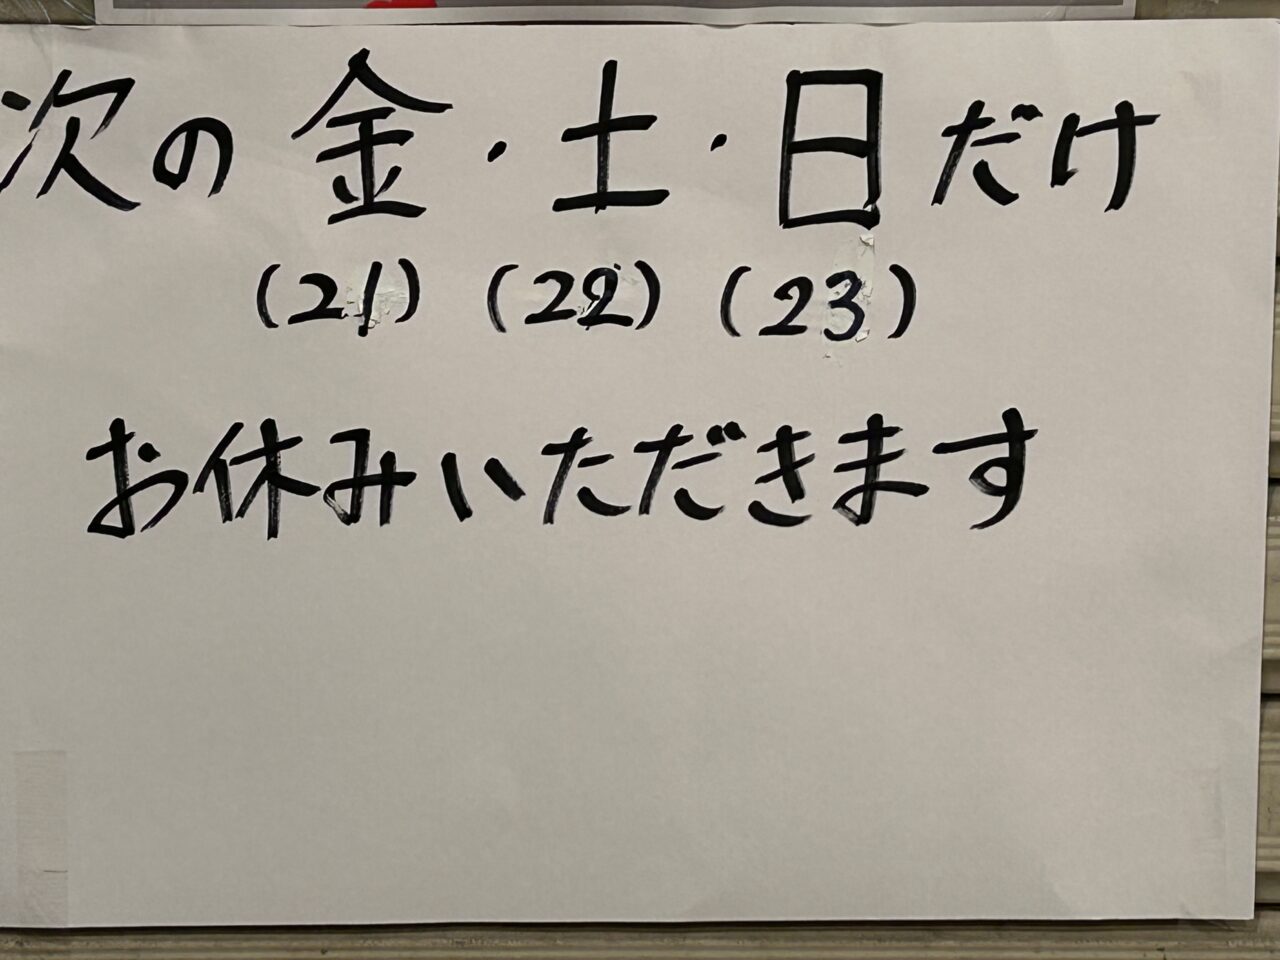 次の金・土・日だけ
(21) (22) (23)
お休みいただきます